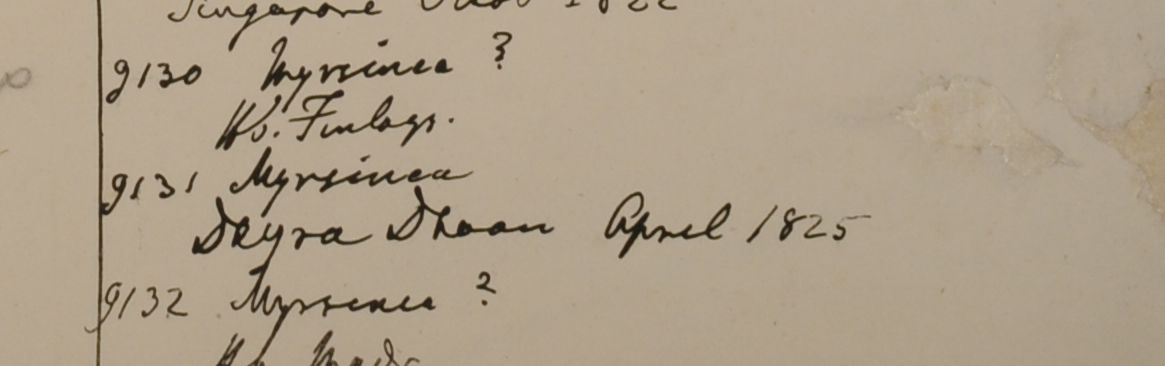 Singapore Octob 1822
9130 Myrsinea ?
Hb. Finlays.
9131 Myrsinea
Deyra Dhoon April 1825
9132 Myrsinea ?
Hb. Madr